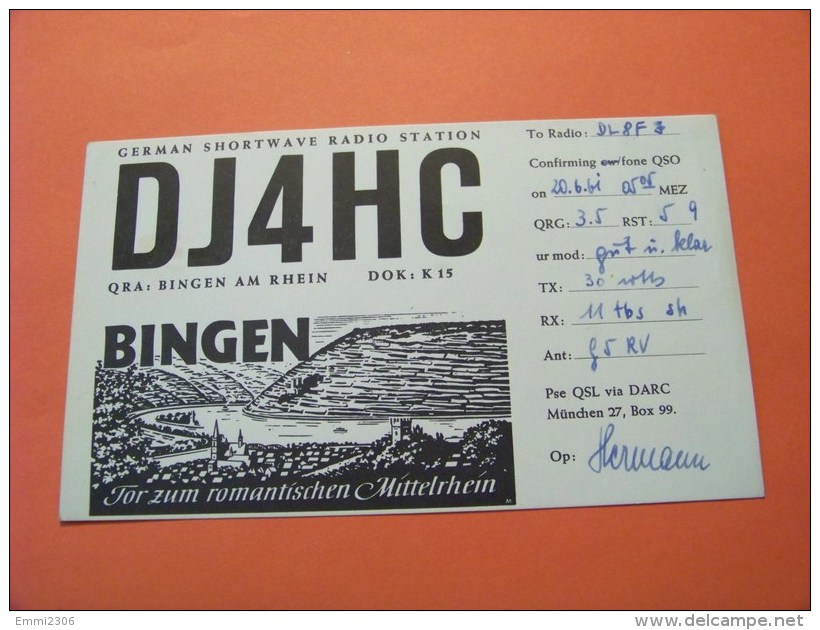 GERMAN SHORTWAVE RADIO STATION
DJ4HC
QRA: BINGEN AM RHEIN DOK: K 15
BINGEN
Tor zum romantischen Mittelrhein
To Radio: DL8F
Confirming cw/fone QSO
on 20.6.61 0505 MEZ
QRG: 3.5 RST: 5 9
ur mod: gut u. klar
TX: 30 wtts
RX: 11 tbs sh
Ant: G5RV
Pse QSL via DARC
München 27, Box 99.
Op: Hermann
Emmi2306
delcampe.net